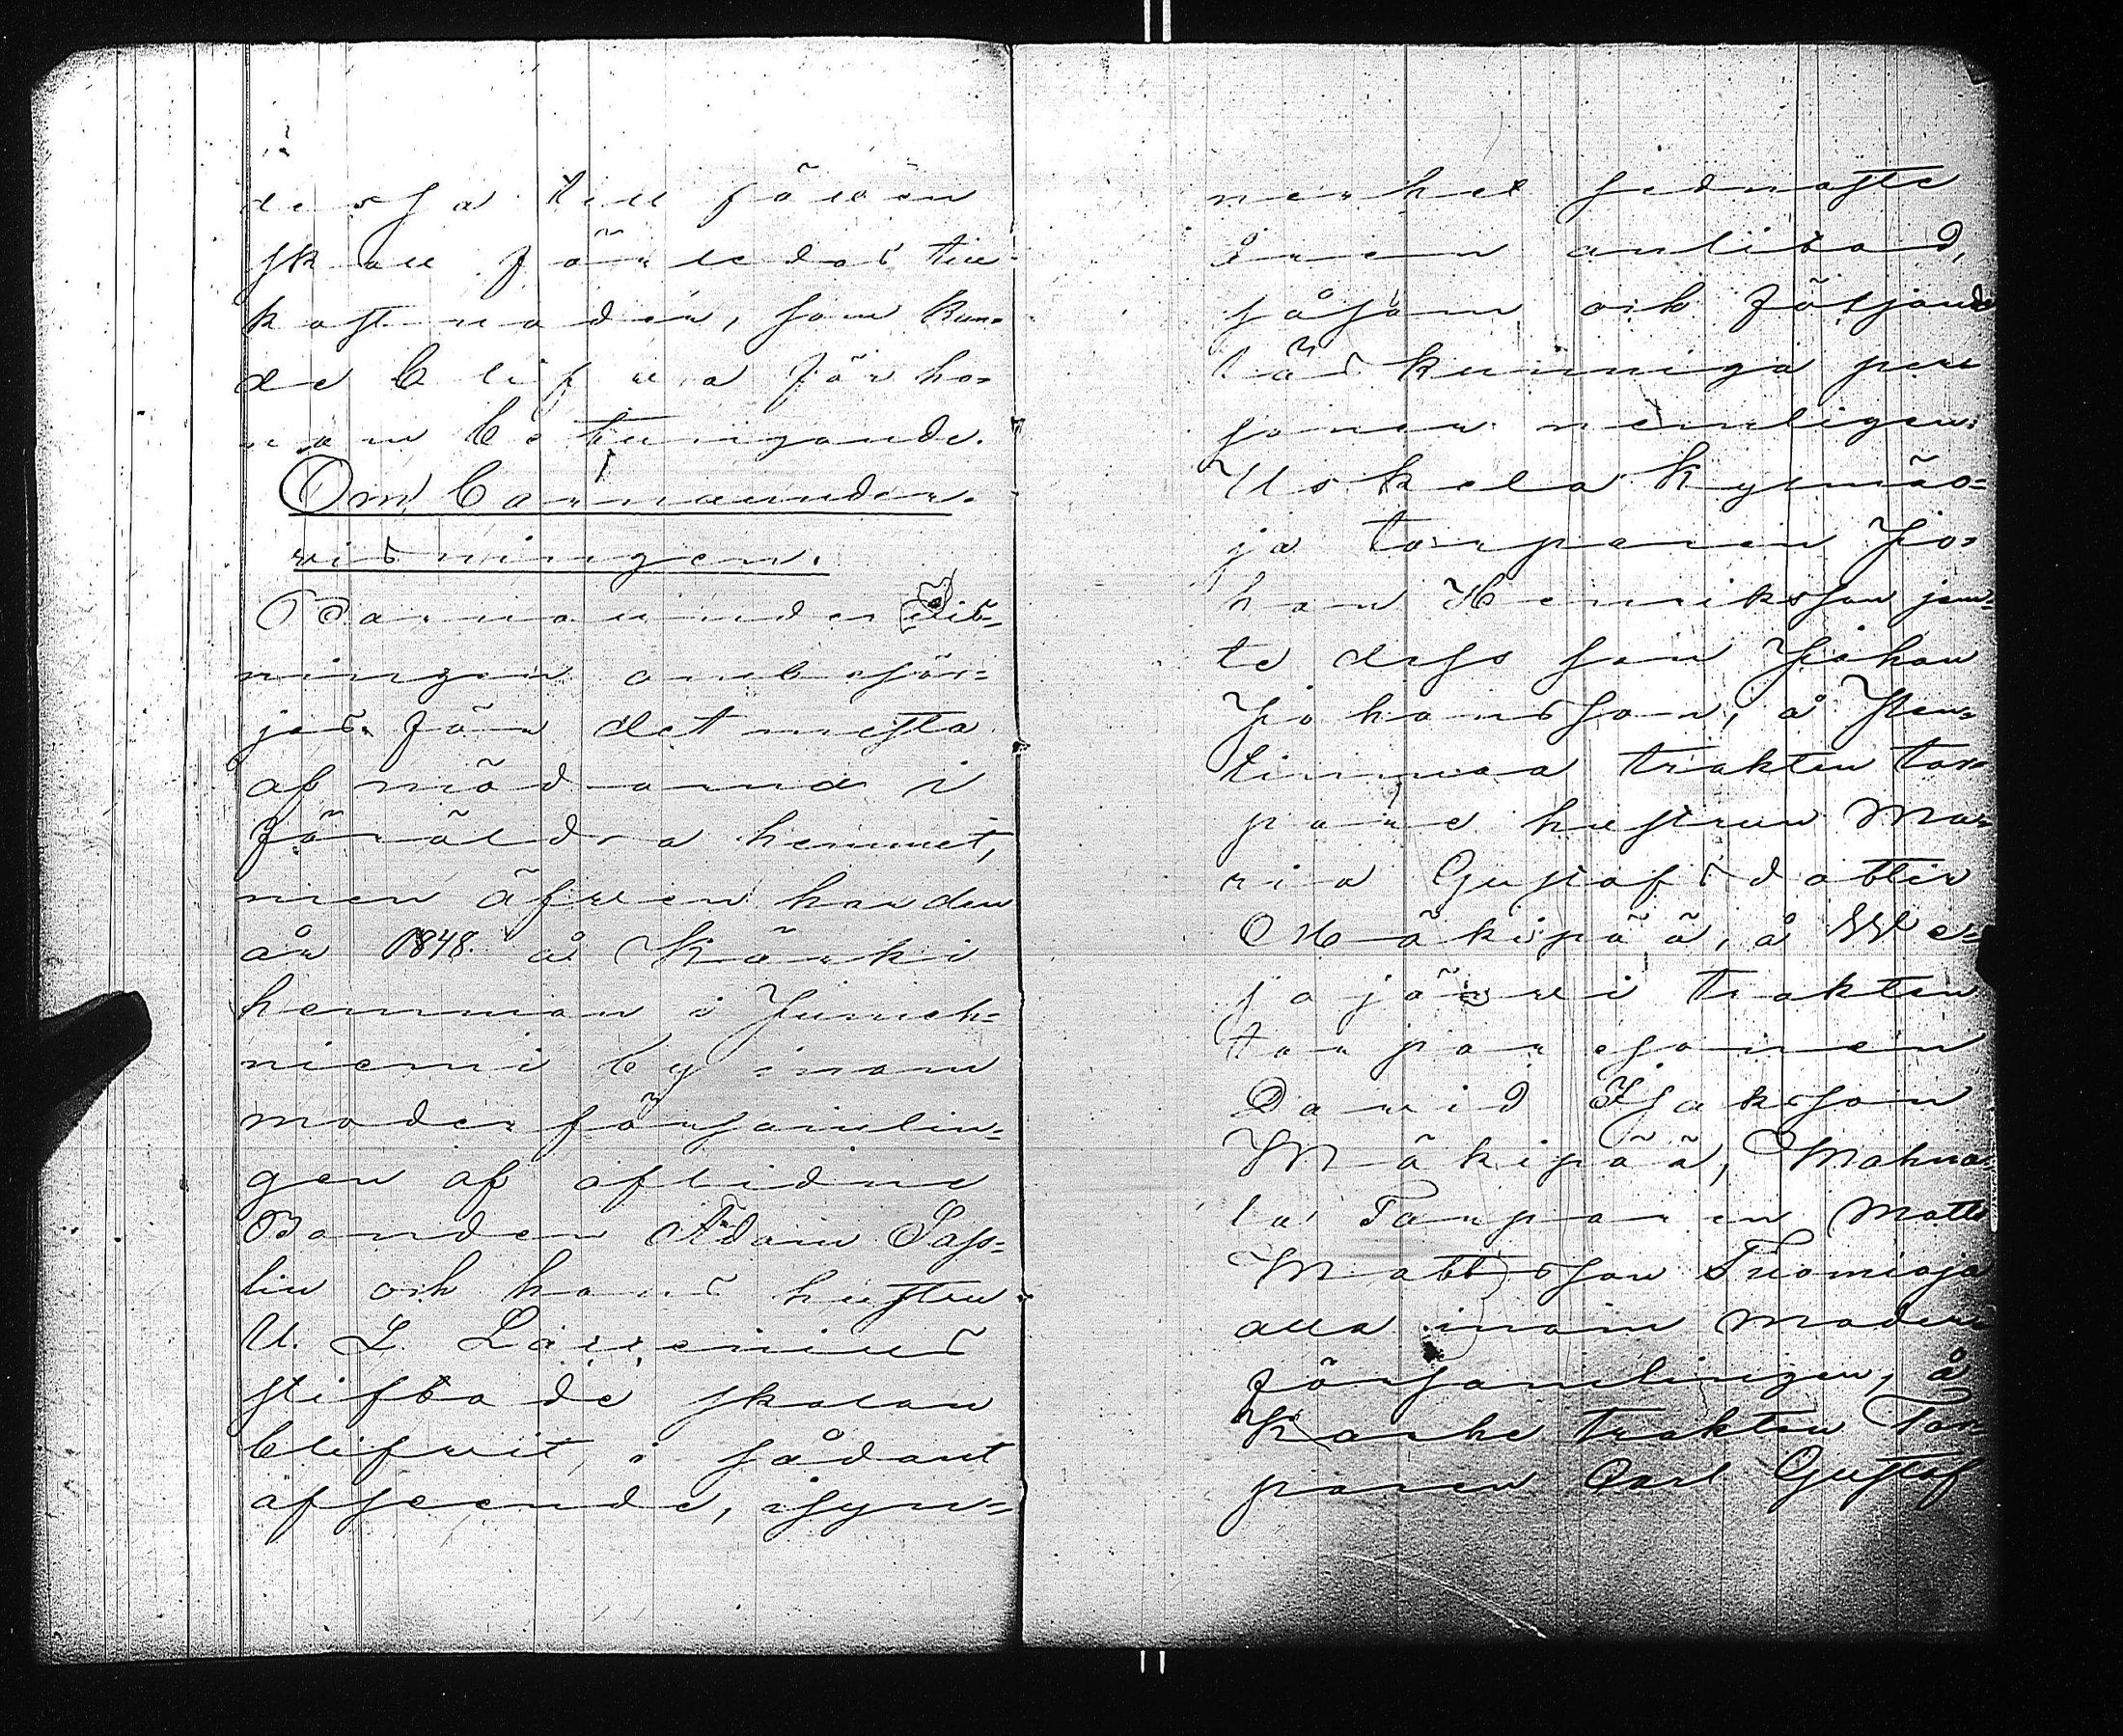 dessa till följe
skall förledas till
kostnaden, som kun=
de blifwa för ho=
nom betungande.
Om barnaunder=
wisningen.
Barnaunderwis=
ningen ombesör=
jes för det mesta
af mödrarna i
föräldra hemmet,
men äfwen har den
år 1848 å Kärki
hemman i Jumeh=
niemi by inom
moderförsamlin=
gen af aflidne
Bonden Adam Sass=
lin och hans hustru
U. L. Laurenius
stiftade skolan
blifwit i sådant
afseende, isyn=
nerhet sednaste
åren anlitad,
såsom ock följande
läskunniga per
soner nemligen:
Uskela Kylmäo=
ja torparen Jo=
han Henriksson jem=
te dess son Johan
Johansson, å Sten=
timmaa trakten tor=
pare hustrun Ma=
ria Gustafsdotter
Mäkipää, å We=
sajärwi trakten
torparesonen
David Isaksson
Mäkipää, Mahna=
la Torparen Matts
Mattsson Tuomioja
alla inom moder
församlingen, å
Karhe trakten Tor=
paren Carl Gustaf